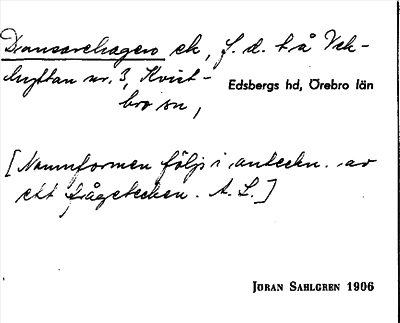 Dansarehagen ek, f. d. trå Vek-
hyttan nr. 3, Kvist-
bro sn,
Edsbergs hd, Örebro län
[Namnformen följs i anteckn. av
ett frågetecken. A. L.]
JÖRAN SAHLGREN 1906